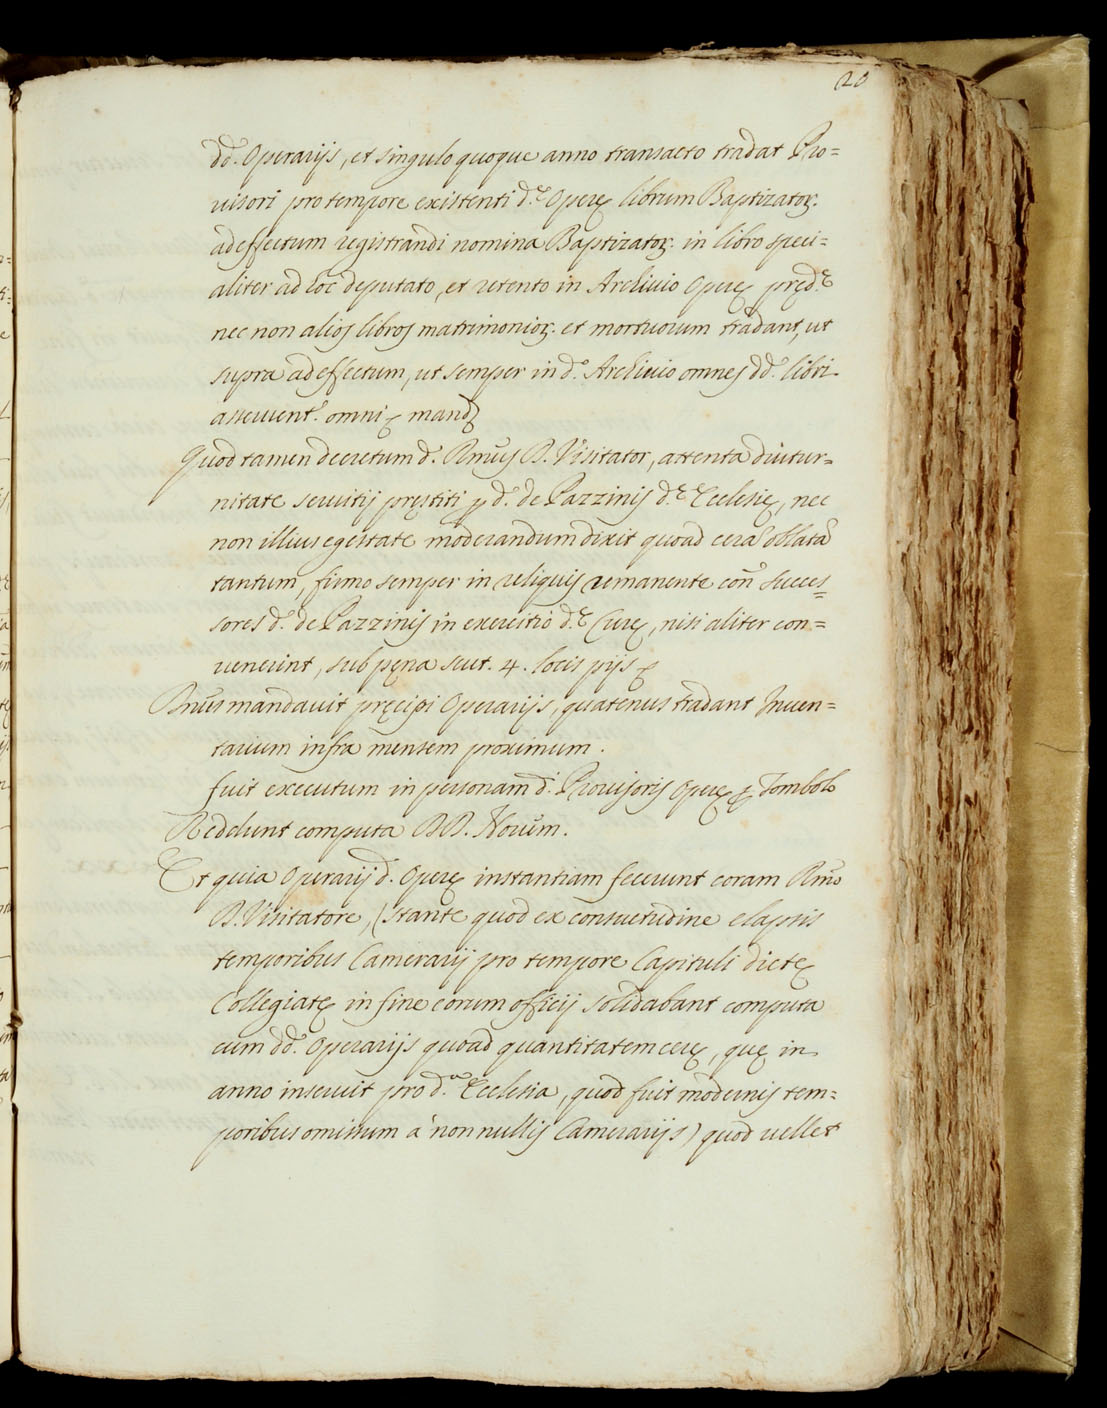 20
dd. Operarijs, et singulo quoque anno transacto tradat Pro=
uisori pro tempore existenti d.ę Operę librum Baptizatoꝝ.
ad effectum registrandi nomina Baptizatoꝝ. in libro speci=
aliter ad hoc deputato, et retento in Archiuio Operę pręd.ę
nec non alios libros matrimonioꝝ. et mortuorum tradant, ut
supra ad effectum, ut semper in d.º Archiuio omnes dd. libri
asseruent.r omni mand
Quod tamen decretum d. Rmũs D. Visitator, attenta diutur=
nitate seruitij pręstiti ꝑ d. de Pazzinis d.ę Ecclesię, nec
non illius egestate moderandum dixit quoad cerã oblatã
tantum, firmo semper in reliquis remanente coñ succes=
sores d. de Pazzinis in exercitio d.ę Curę, nisi aliter con=
uenerint, sub pęna scut. 4. locis pijs
Rmũs mandauit pręcipi Operarijs, quatenus tradant Inuen=
tarium infra mensem proximum.
fuit executum in personam d. Prouisoris Operę Tombolo
Reddunt computa DD. Nouũm.
Et quia Operarij d. Operę instantiam fecerunt coram Rmo
D. Visitatore, (stante quod ex consuetudine elapsis
temporibus Camerarij pro tempore Capituli dictę
Collegiatę in fine eorum officij solidabant computa
cum dd. Operarijs quoad quantitatem cerę, quę in
anno inseruit pro d.a Ecclesia, quod fuit modernis tem=
poribus omissum à nonnullis Camerarijs) quod uellet